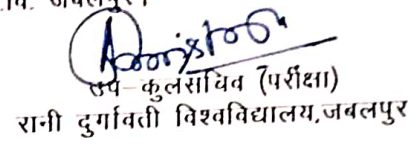 जबलपुर।
उप-कुलसचिव (परीक्षा)
रानी दुर्गावती विश्वविद्यालय,जबलपुर